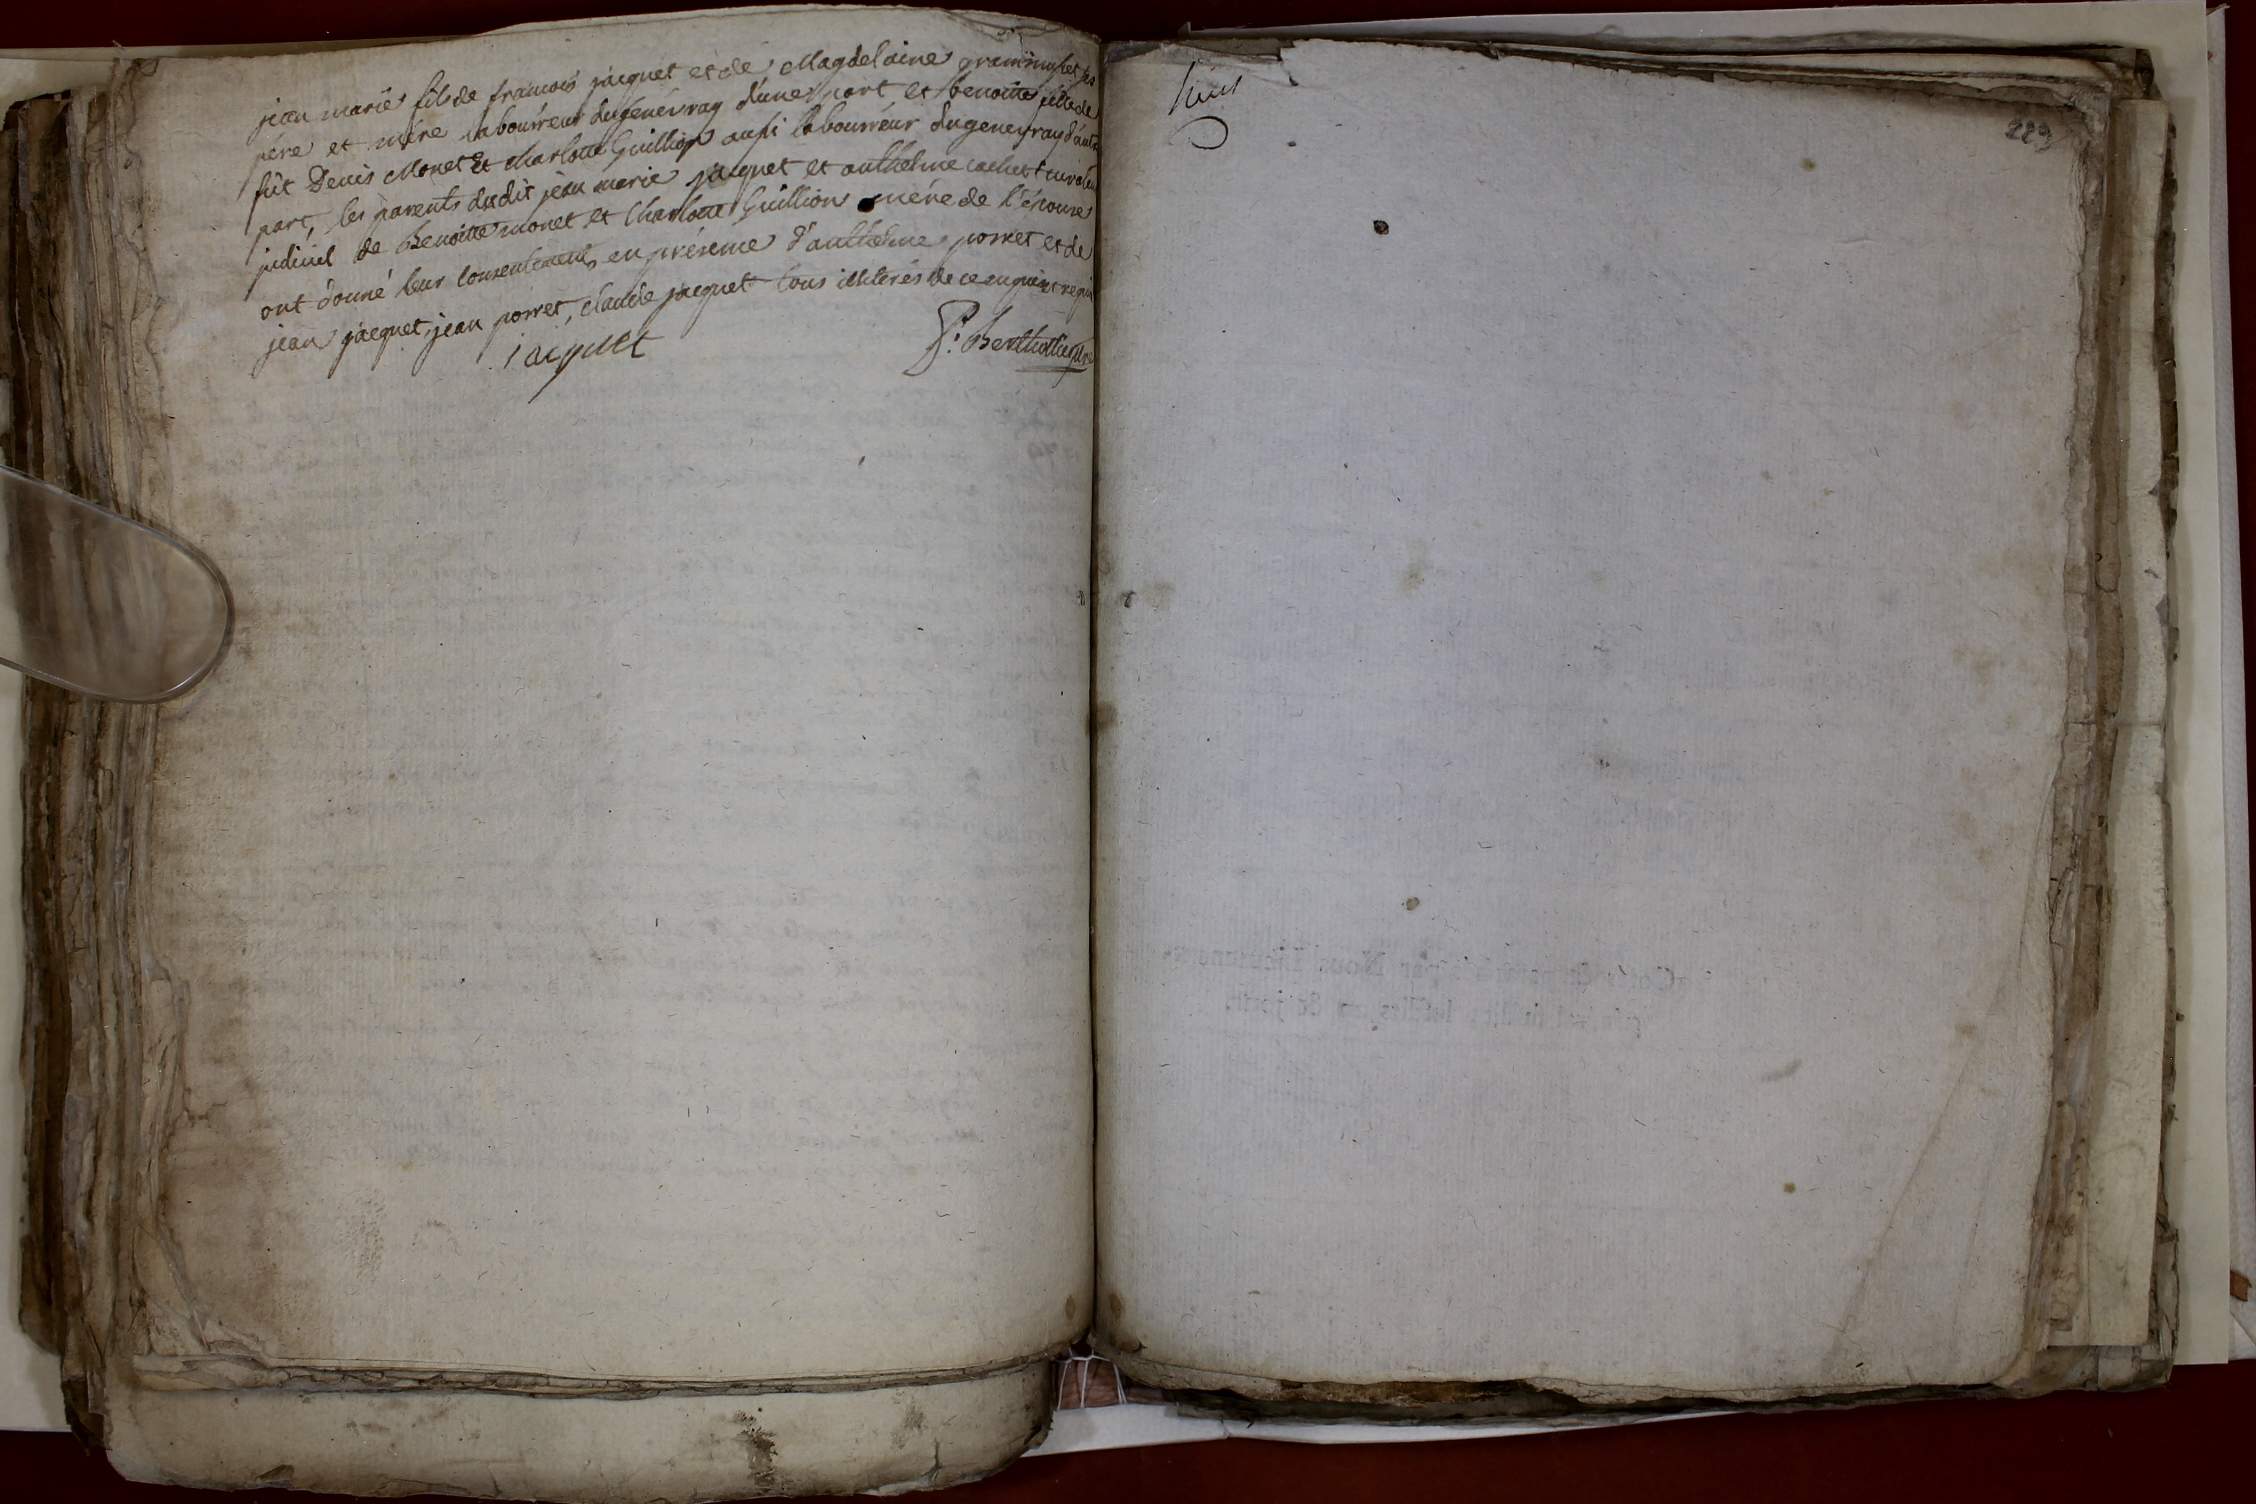 jean marie fils de francois jacquet et de Magdelaine grammuset ses
pére et mére laboureur dugénévray d'une part et benoitte fille de
fût Denis Monet Et charlotte Guillion aussi laboureur dugeneyray d'autre
part, les parents dudit jean marie jacquet et anthelme cachet curateur
judiciel de Benoitte monet et Charlotte Guillion mére de l'épouse
ont donné leur consentement, en présence d'anthelme porret et de
jean jacquet, jean porret, claude jacquet tous illiterés de ce enquis et requis
jacquet
P. Berthollier ptre
huit
223